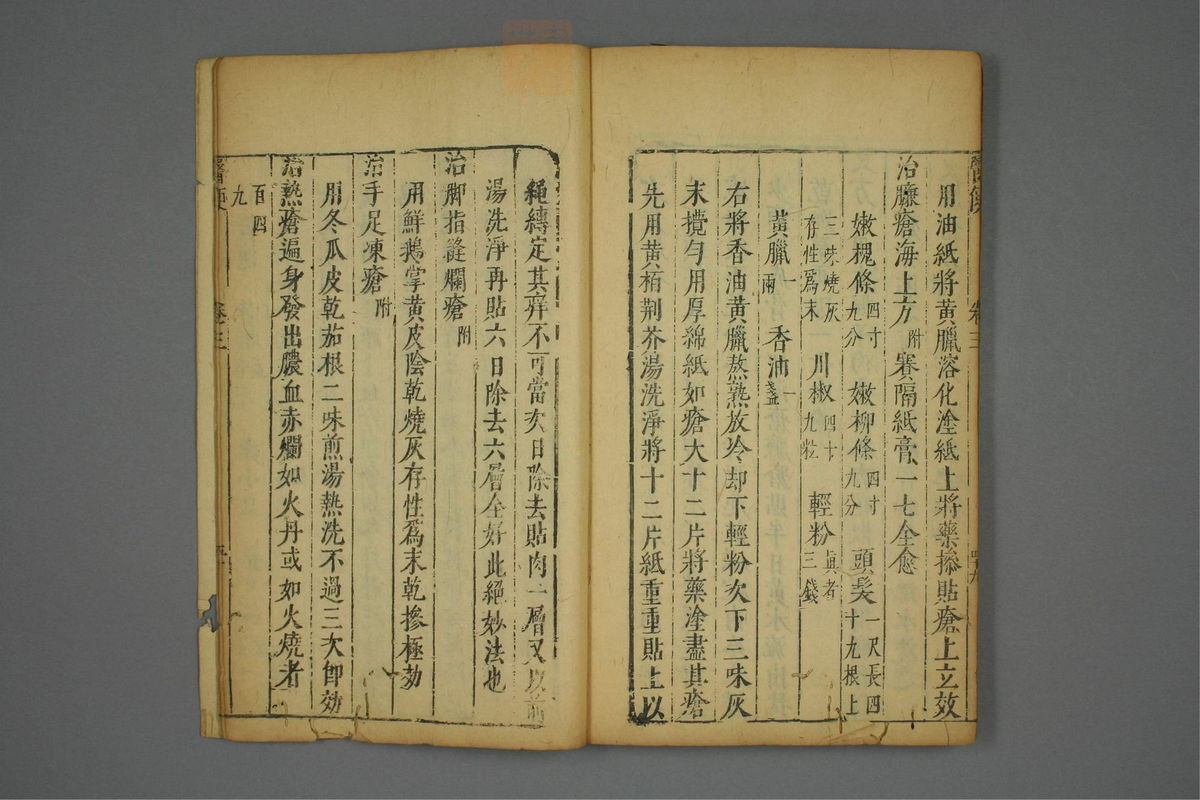 用油紙將黃臘溶化塗紙上將藥摻貼瘡上立效
治臁瘡海上方附賽隔紙膏一七全愈
嫩槐條四寸九分 嫩柳條四寸九分 頭髮一尺長四十九根上
三味燒灰存性爲末 川椒四十九粒 輕粉眞者三錢
黃臘一兩 香油一盞
右將香油黃臘熬熟放冷却下輕粉次下三味灰
末攪勻用厚綿紙如瘡大十二片將藥塗盡其瘡
先用黃栢荆芥湯洗淨將十二片紙重重貼上以
繩縛定其痒不可當次日除去貼肉一層又以前
湯洗淨再貼六日除去六層全好此絕妙法也
治脚指縫爛瘡附
用鮮鵝掌黃皮陰乾燒灰存性爲末乾摻極効
治手足凍瘡附
用冬瓜皮乾茄根二味煎湯熱洗不過三次卽効
治熱瘡遍身發出膿血赤爛如火丹或如火燒者
百四九
卷三